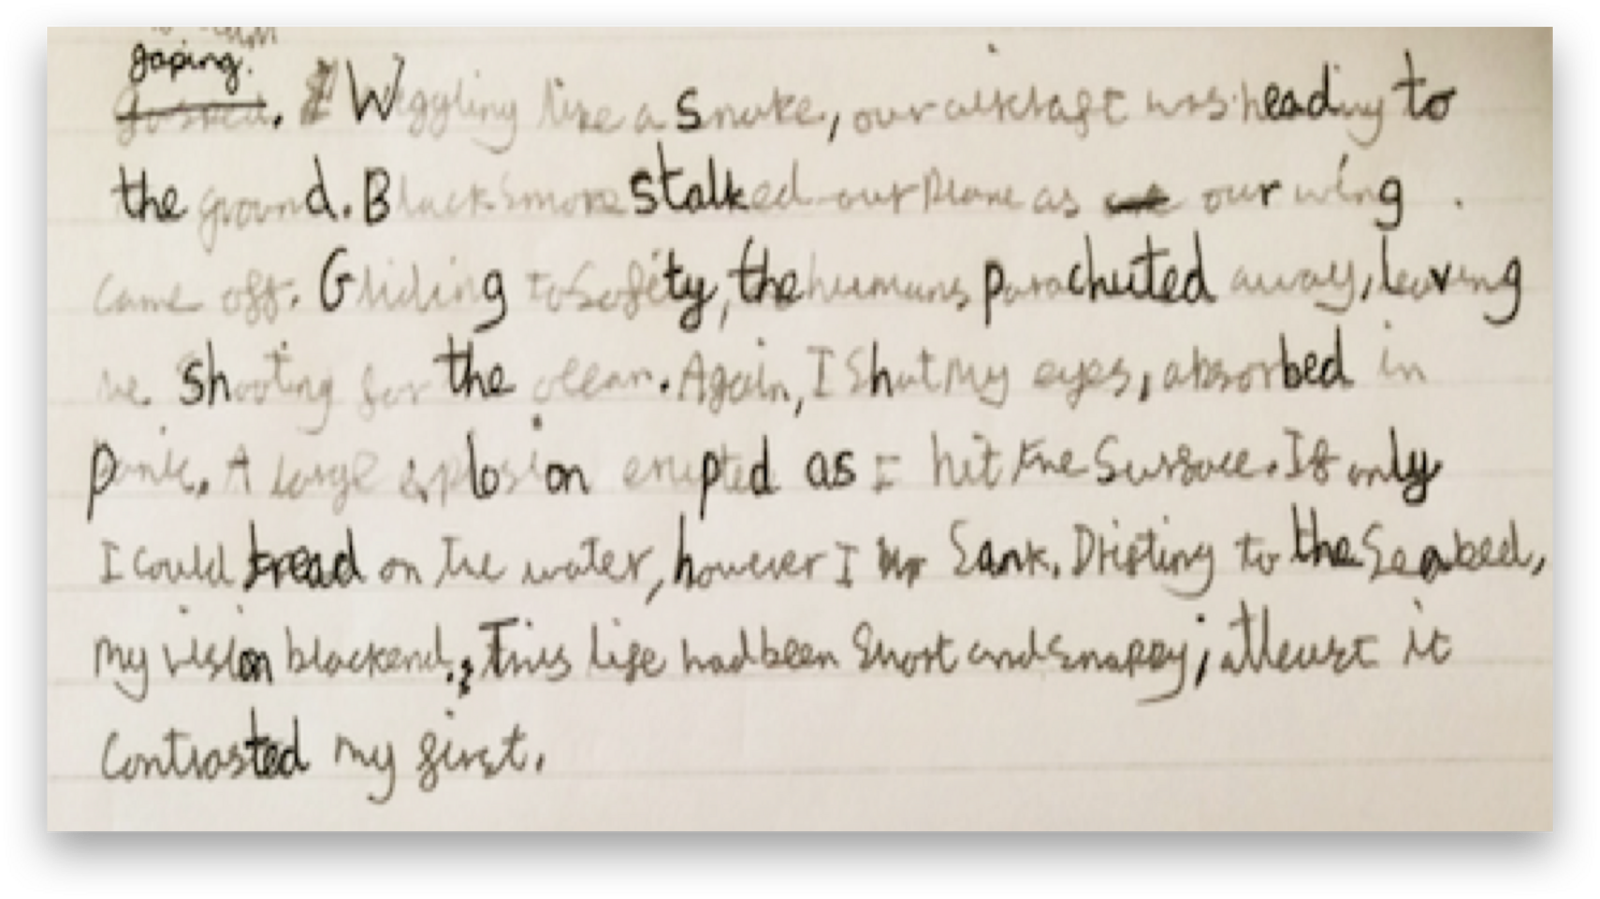 gaping.
. Wiggling like a snake, our aircraft was heading to
the ground. Black smoke stalked our plane as our wing
came off. Gliding to safety, the humans parachuted away, leaving
me shooting for the ocean. Again, I shut my eyes, absorbed in
panic. A large explosion erupted as I hit the surface. If only
I could tread on the water, however I sank. Drifting to the seabed,
my vision blackend. This life had been short and snappy; atleast it
contrasted my first.